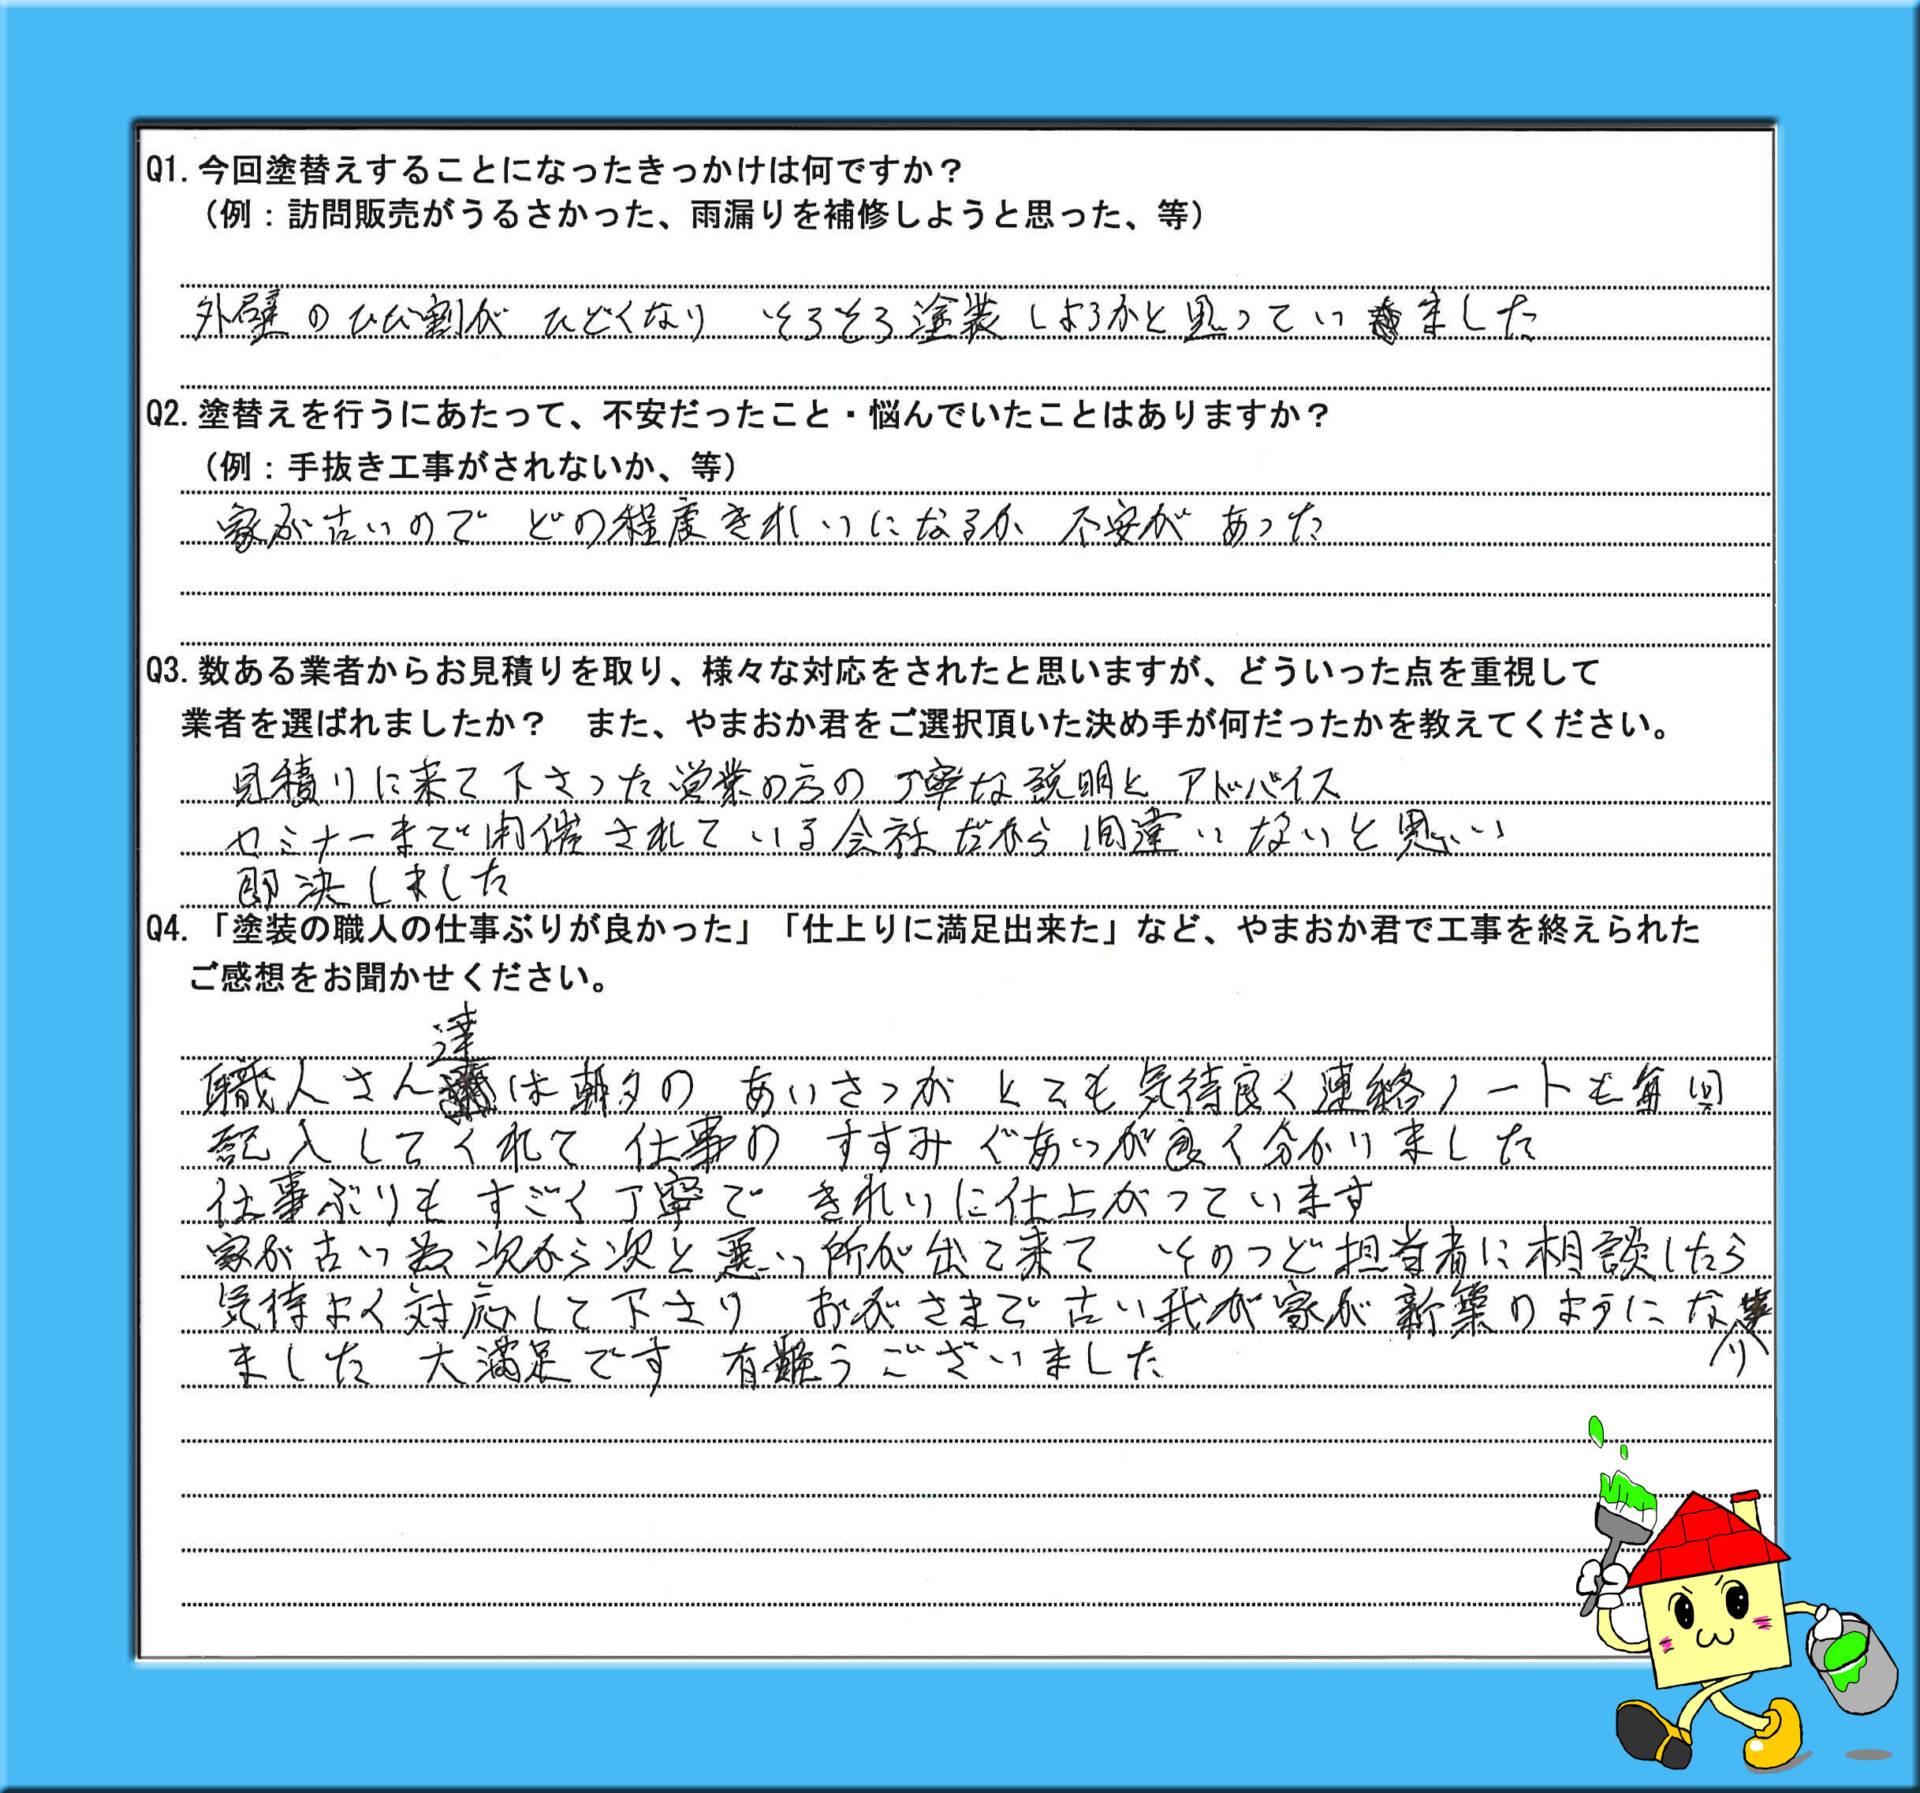 Q1. 今回塗替えすることになったきっかけは何ですか？
（例：訪問販売がうるさかった、雨漏りを補修しようと思った、等）
外壁のひび割が ひどくなり そろそろ塗装しようかと思っていました
Q2. 塗替えを行うにあたって、不安だったこと・悩んでいたことはありますか？
（例：手抜き工事がされないか、等）
家が古いので どの程度きれいになるか 不安が あった
Q3. 数ある業者からお見積りを取り、様々な対応をされたと思いますが、どういった点を重視して
業者を選ばれましたか？　また、やまおか君をご選択頂いた決め手が何だったかを教えてください。
見積りに来て下さった営業の方の 丁寧な説明と アドバイス
セミナーまで開催されている会社だから間違いないと思い
即決しました
Q4. 「塗装の職人の仕事ぶりが良かった」「仕上りに満足出来た」など、やまおか君で工事を終えられた
ご感想をお聞かせください。
職人さん達は朝夕の あいさつが とても気持良く連絡ノートも毎回
記入してくれて 仕事の すすみぐあいが良く分かりました
仕事ぶりも すごく丁寧で きれいに仕上がっています
家が古い為 次から次と悪い所が出て来て そのつど担当者に相談したら
気持よく対応して下さり おかげさまで古い我が家が新築のようになり
ました 大満足です 有難うございました